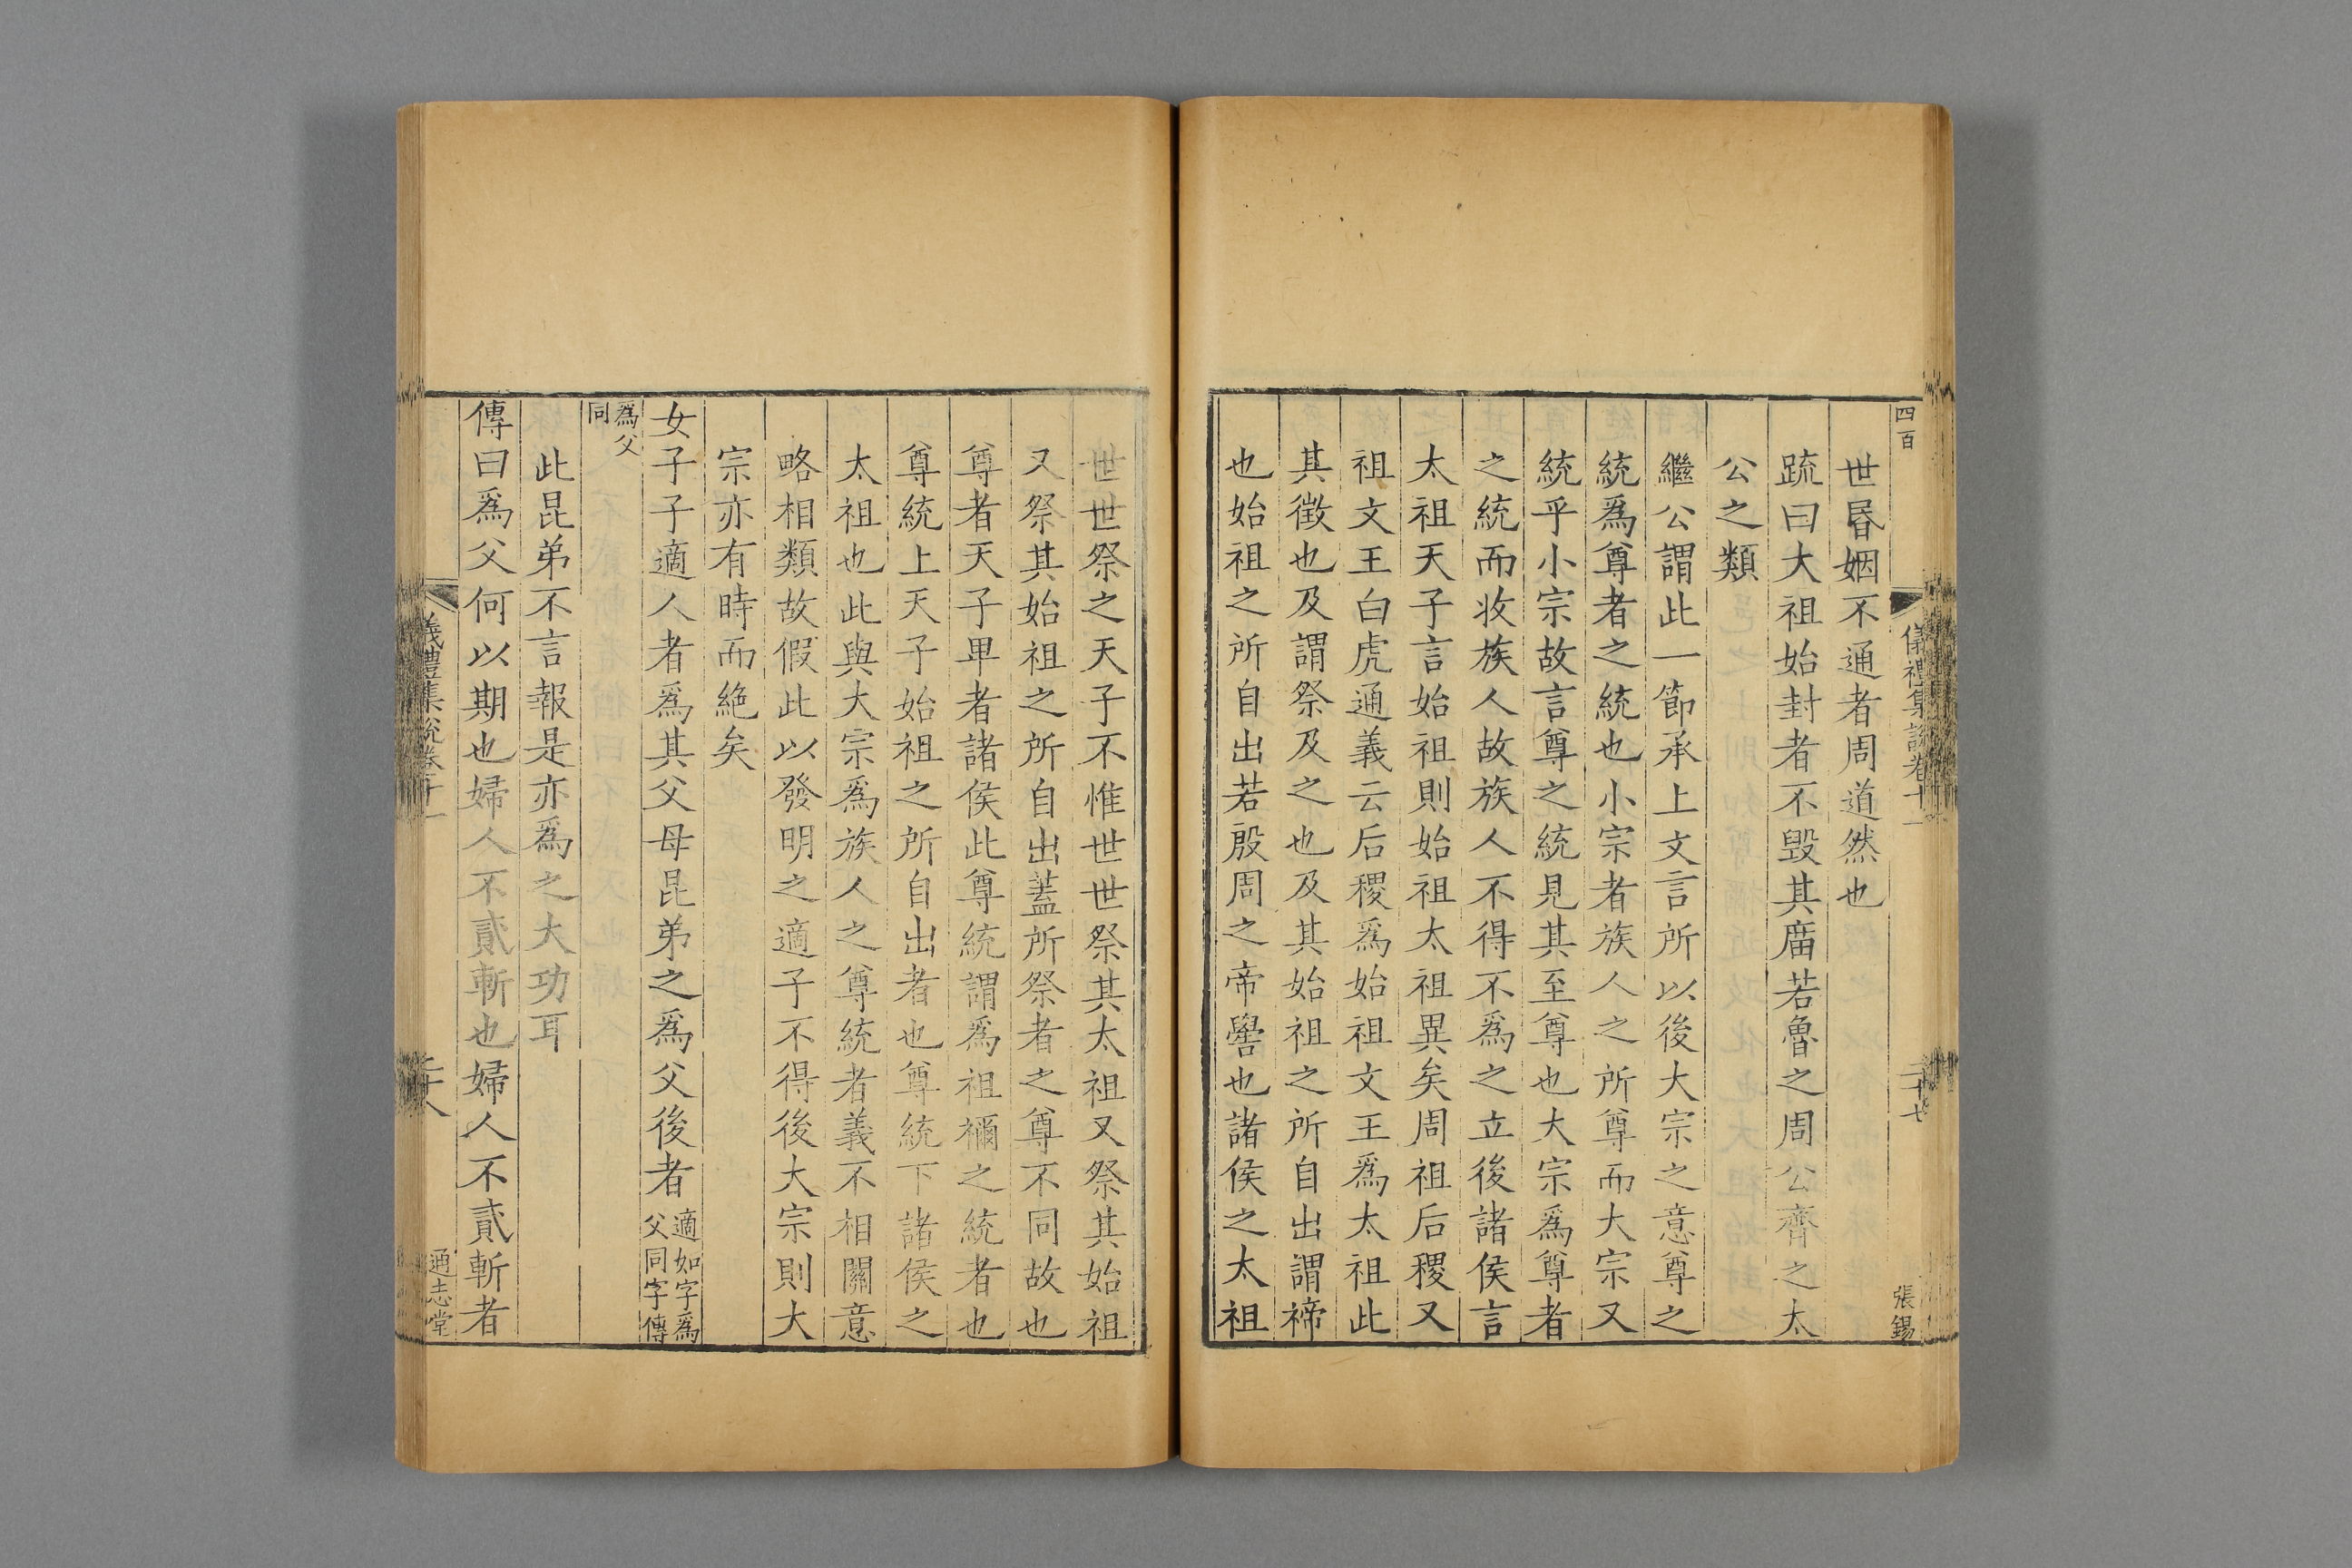 四百
儀禮集說卷十一
二十七
張錫
世昬姻不通者周道然也
疏曰大祖始封者不毀其廟若魯之周公齊之太
公之類
繼公謂此一節承上文言所以後大宗之意尊之
統爲尊者之統也小宗者族人之所尊而大宗又
統乎小宗故言尊之統見其至尊也大宗爲尊者
之統而收族人故族人不得不爲之立後諸侯言
太祖天子言始祖則始祖太祖異矣周祖后稷又
祖文王白虎通義云后稷爲始祖文王爲太祖此
其徵也及謂祭及之也及其始祖之所自出謂禘
也始祖之所自出若殷周之帝嚳也諸侯之太祖
世世祭之天子不惟世世祭其太祖又祭其始祖
又祭其始祖之所自出蓋所祭者之尊不同故也
尊者天子卑者諸侯此尊統謂爲祖禰之統者也
尊統上天子始祖之所自出者也尊統下諸侯之
太祖也此與大宗爲族人之尊統者義不相關意
略相類故假此以發明之適子不得後大宗則大
宗亦有時而絶矣
女子子適人者爲其父母昆弟之爲父後者適如字爲
父同字傳
爲父
同
此昆弟不言報是亦爲之大功耳
傳曰爲父何以期也婦人不貳斬也婦人不貳斬者
儀禮集說卷十一
二十八
通志堂